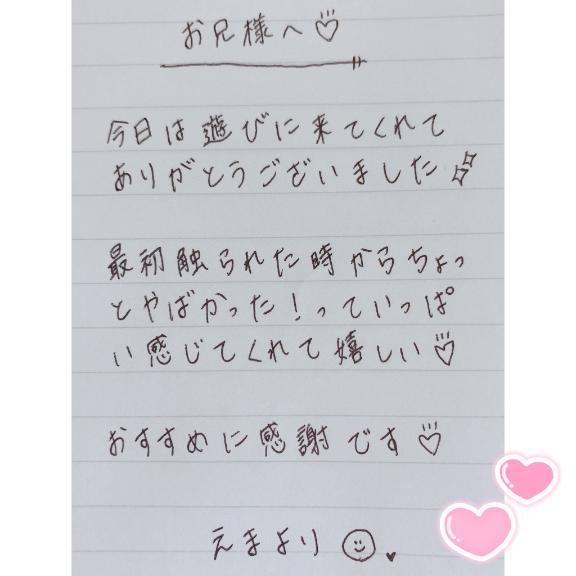 お兄様へ♡
今日は遊びに来てくれて
ありがとうございました
最初触られた時からちょっ
とやばかった！っていっぱ
い感じてくれて嬉しい♡
おすすめに感謝です♡
えまより